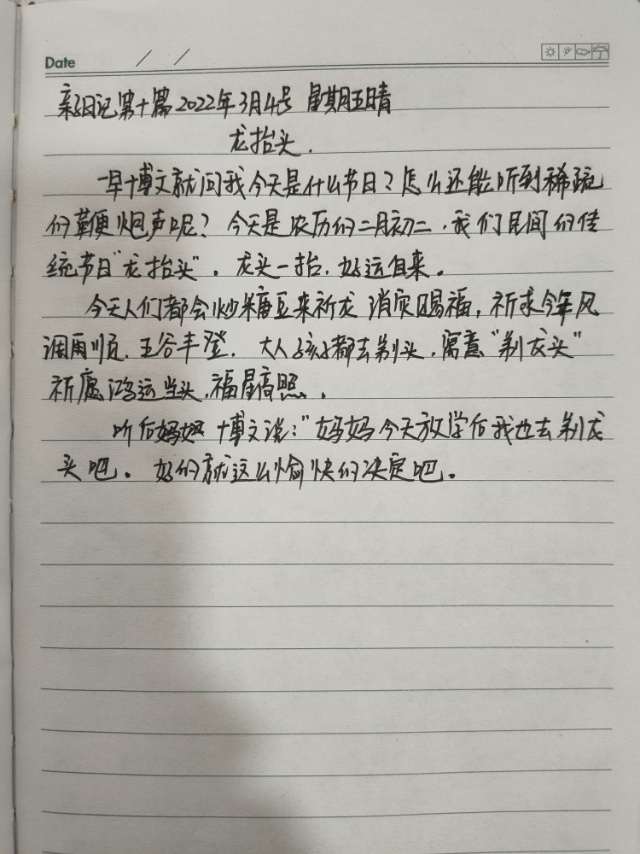 Date / /
亲子日记第十篇2022年3月4号 星期五晴
龙抬头.
一早博文就问我今天是什么节日?怎么还能听到稀疏
的鞭炮声呢?今天是农历的二月初二,我们民间的传
统节日"龙抬头"。龙头一抬,好运自来。
今天人们都会炒糖豆来祈龙消灾赐福,祈求今年风
调雨顺,五谷丰登.大人孩子都去剃头,寓意"剃龙头"
祈愿鸿运当头,福星高照.
听后妈妈博文说:"妈妈今天放学后我也去剃龙
头吧。好的就这么愉快的决定吧。